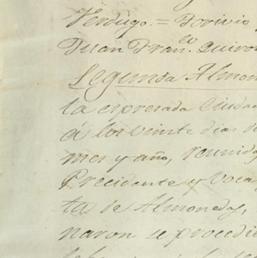 Verdugo. = Dorivio
Juan Fran.co Quiro
Segunda Almon
la espresada Ciuda
á los veinte dias de
mes y año, reunido
Precidente y Voca
ta de Almoneda,
naron se procedie